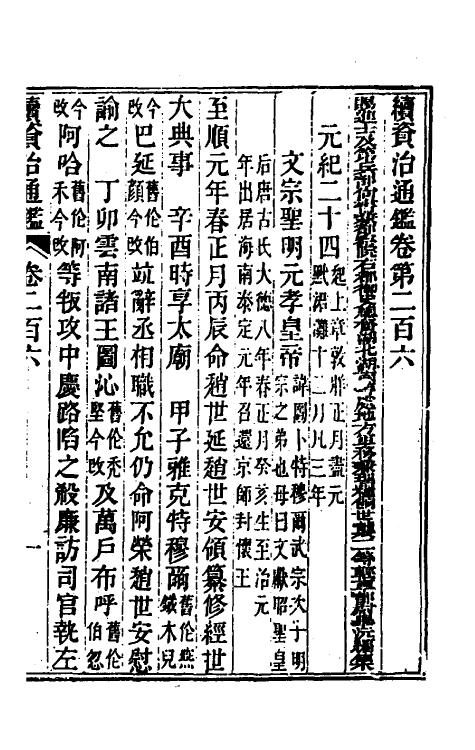 續資治通鑑卷第二百六
元紀二十四起上章敦牂正月盡元黓涒灘十二月凡三年
文宗聖明元孝皇帝諱圖卜特穆爾武宗次子明宗之弟也母曰文獻昭聖皇
后唐古氏大德八年春正月癸亥生至治元
年出居海南泰定元年召還京師封懷王
至順元年春正月丙辰命趙世延趙世安領纂修經世
大典事 辛酉時享太廟 甲子雅克特穆爾舊倫燕鐵木兒
今改巴延舊倫伯顏今改竝辭丞相職不允仍命阿榮趙世安慰
諭之 丁卯雲南諸王圖沁舊倫禿堅今改及萬戶布呼舊倫伯忽
今改阿哈舊倫阿禾今改等叛攻中慶路陷之殺廉訪司官執左
續資治通鑑 卷二百六 一